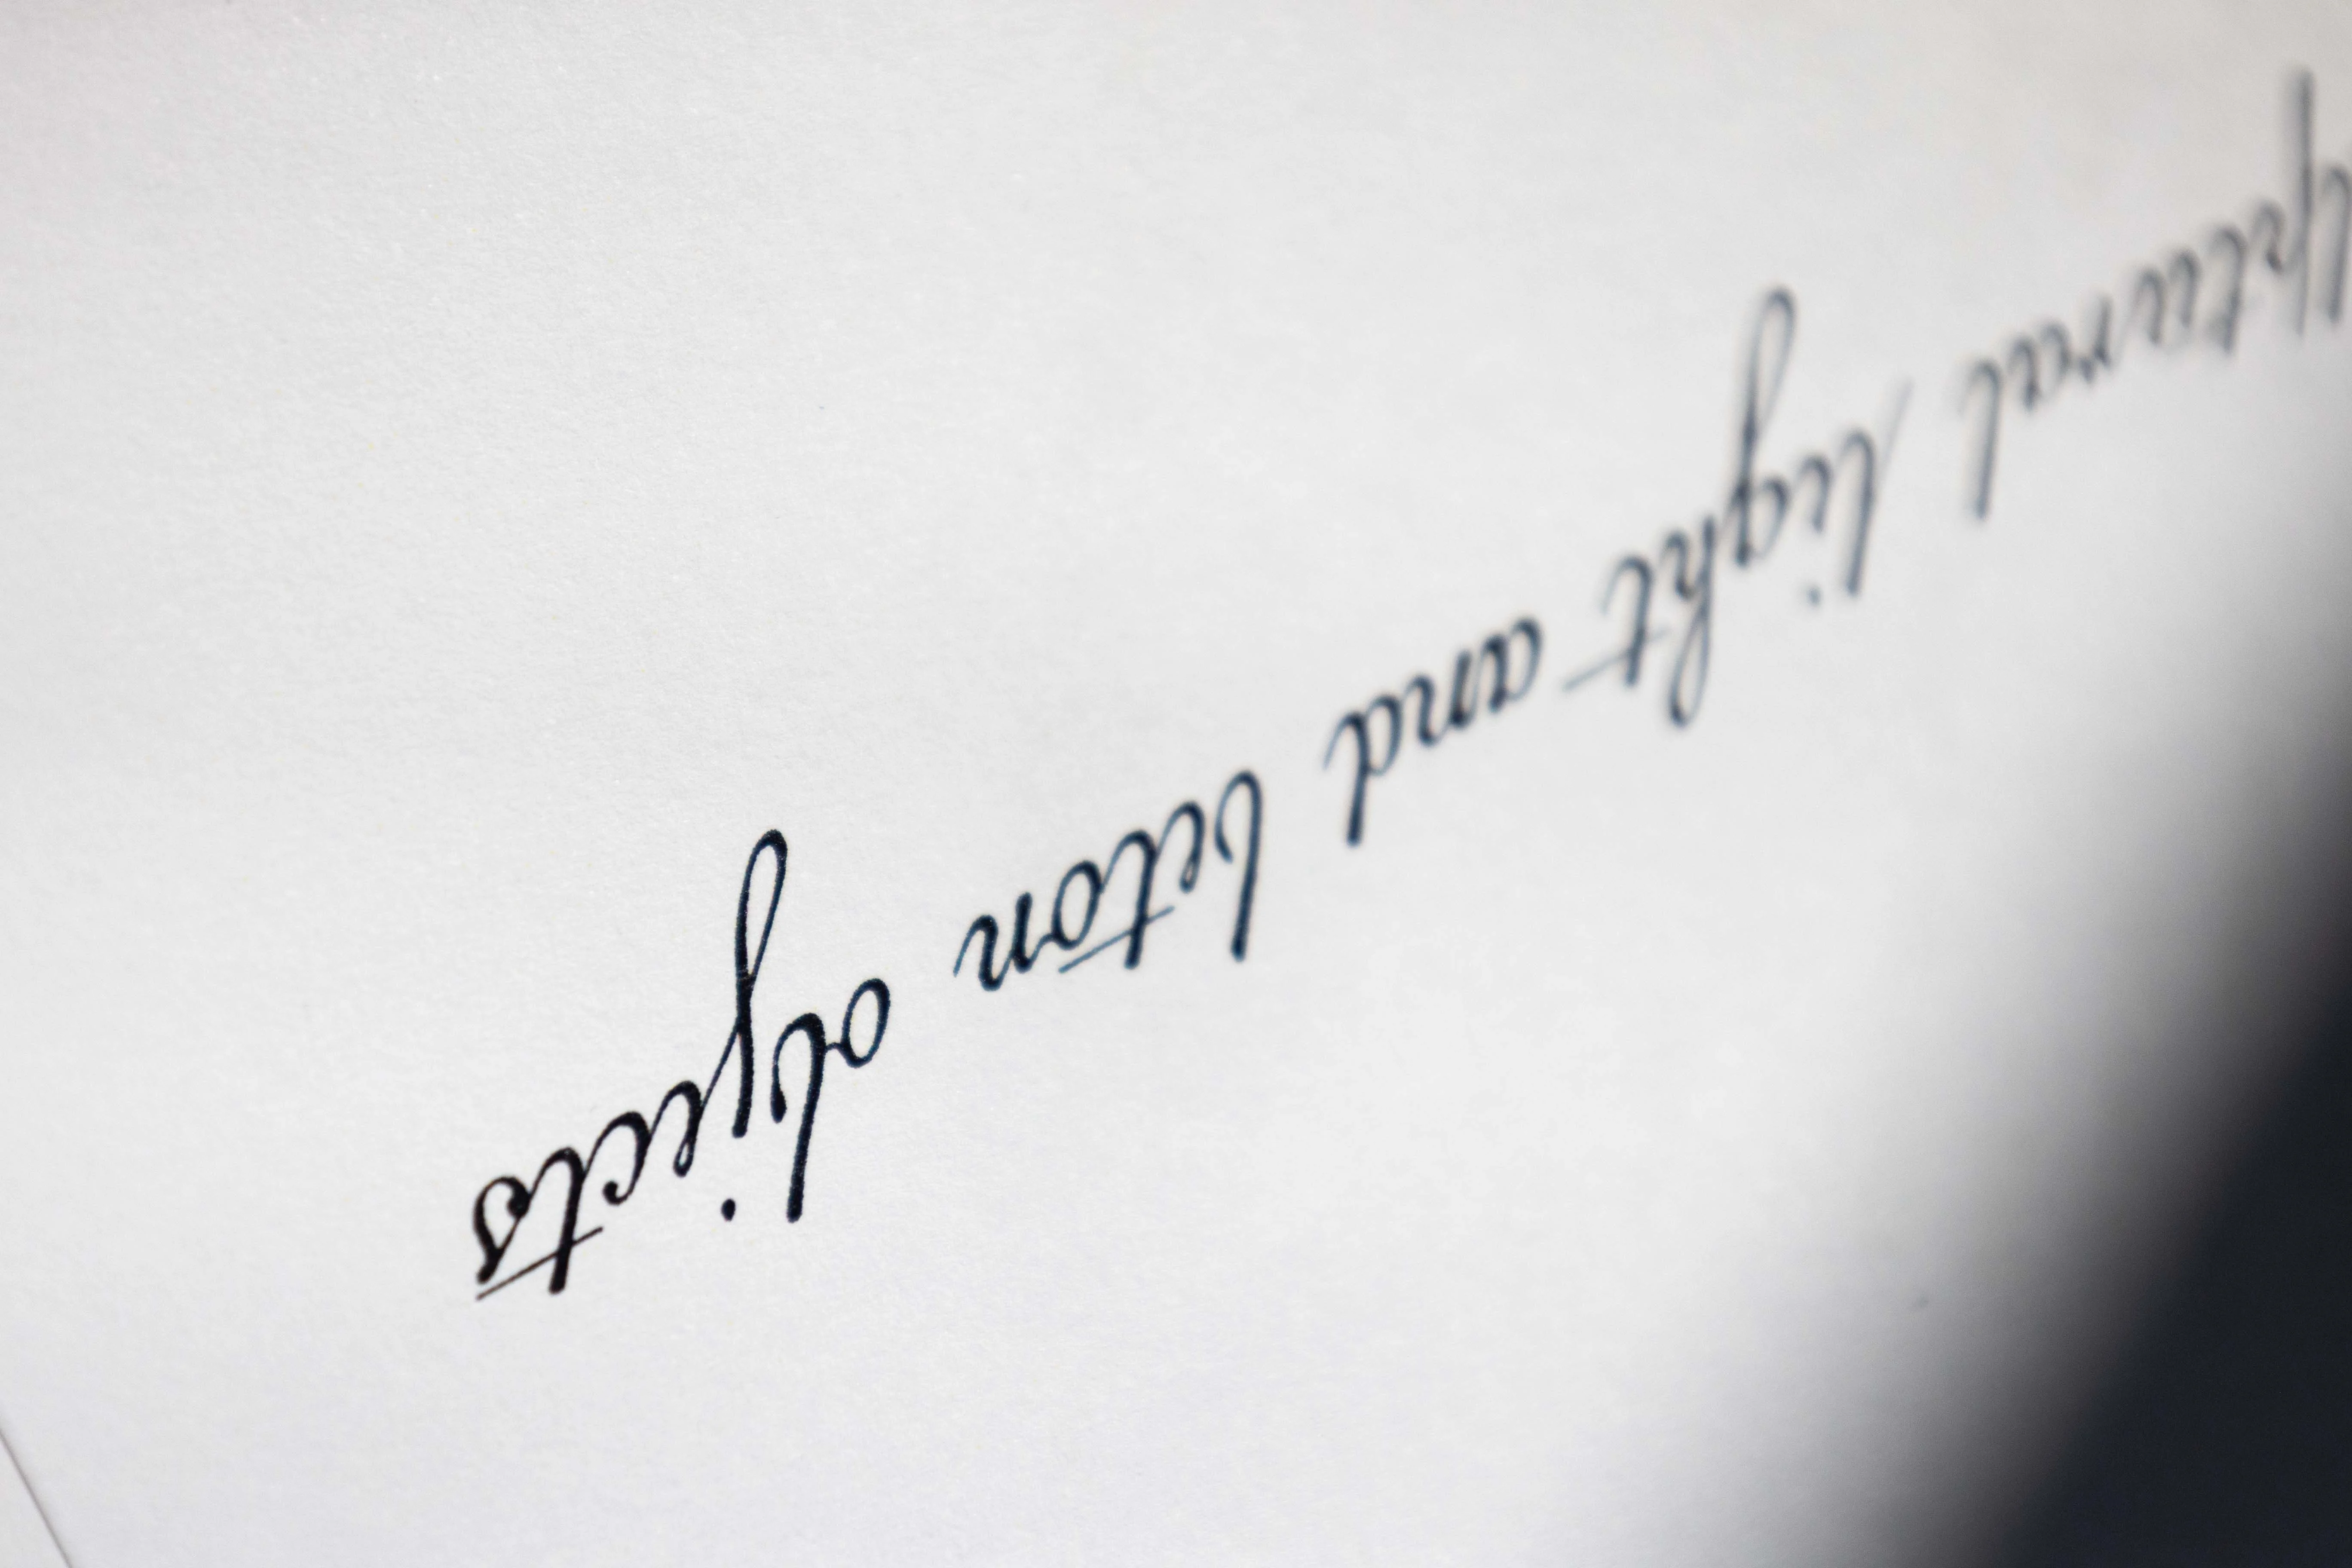 ptural light and beton objects